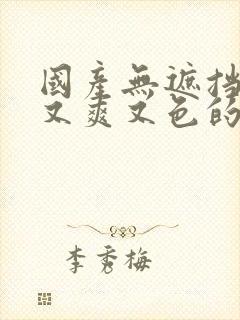 國產無遮挡
又爽又色的
李秀梅